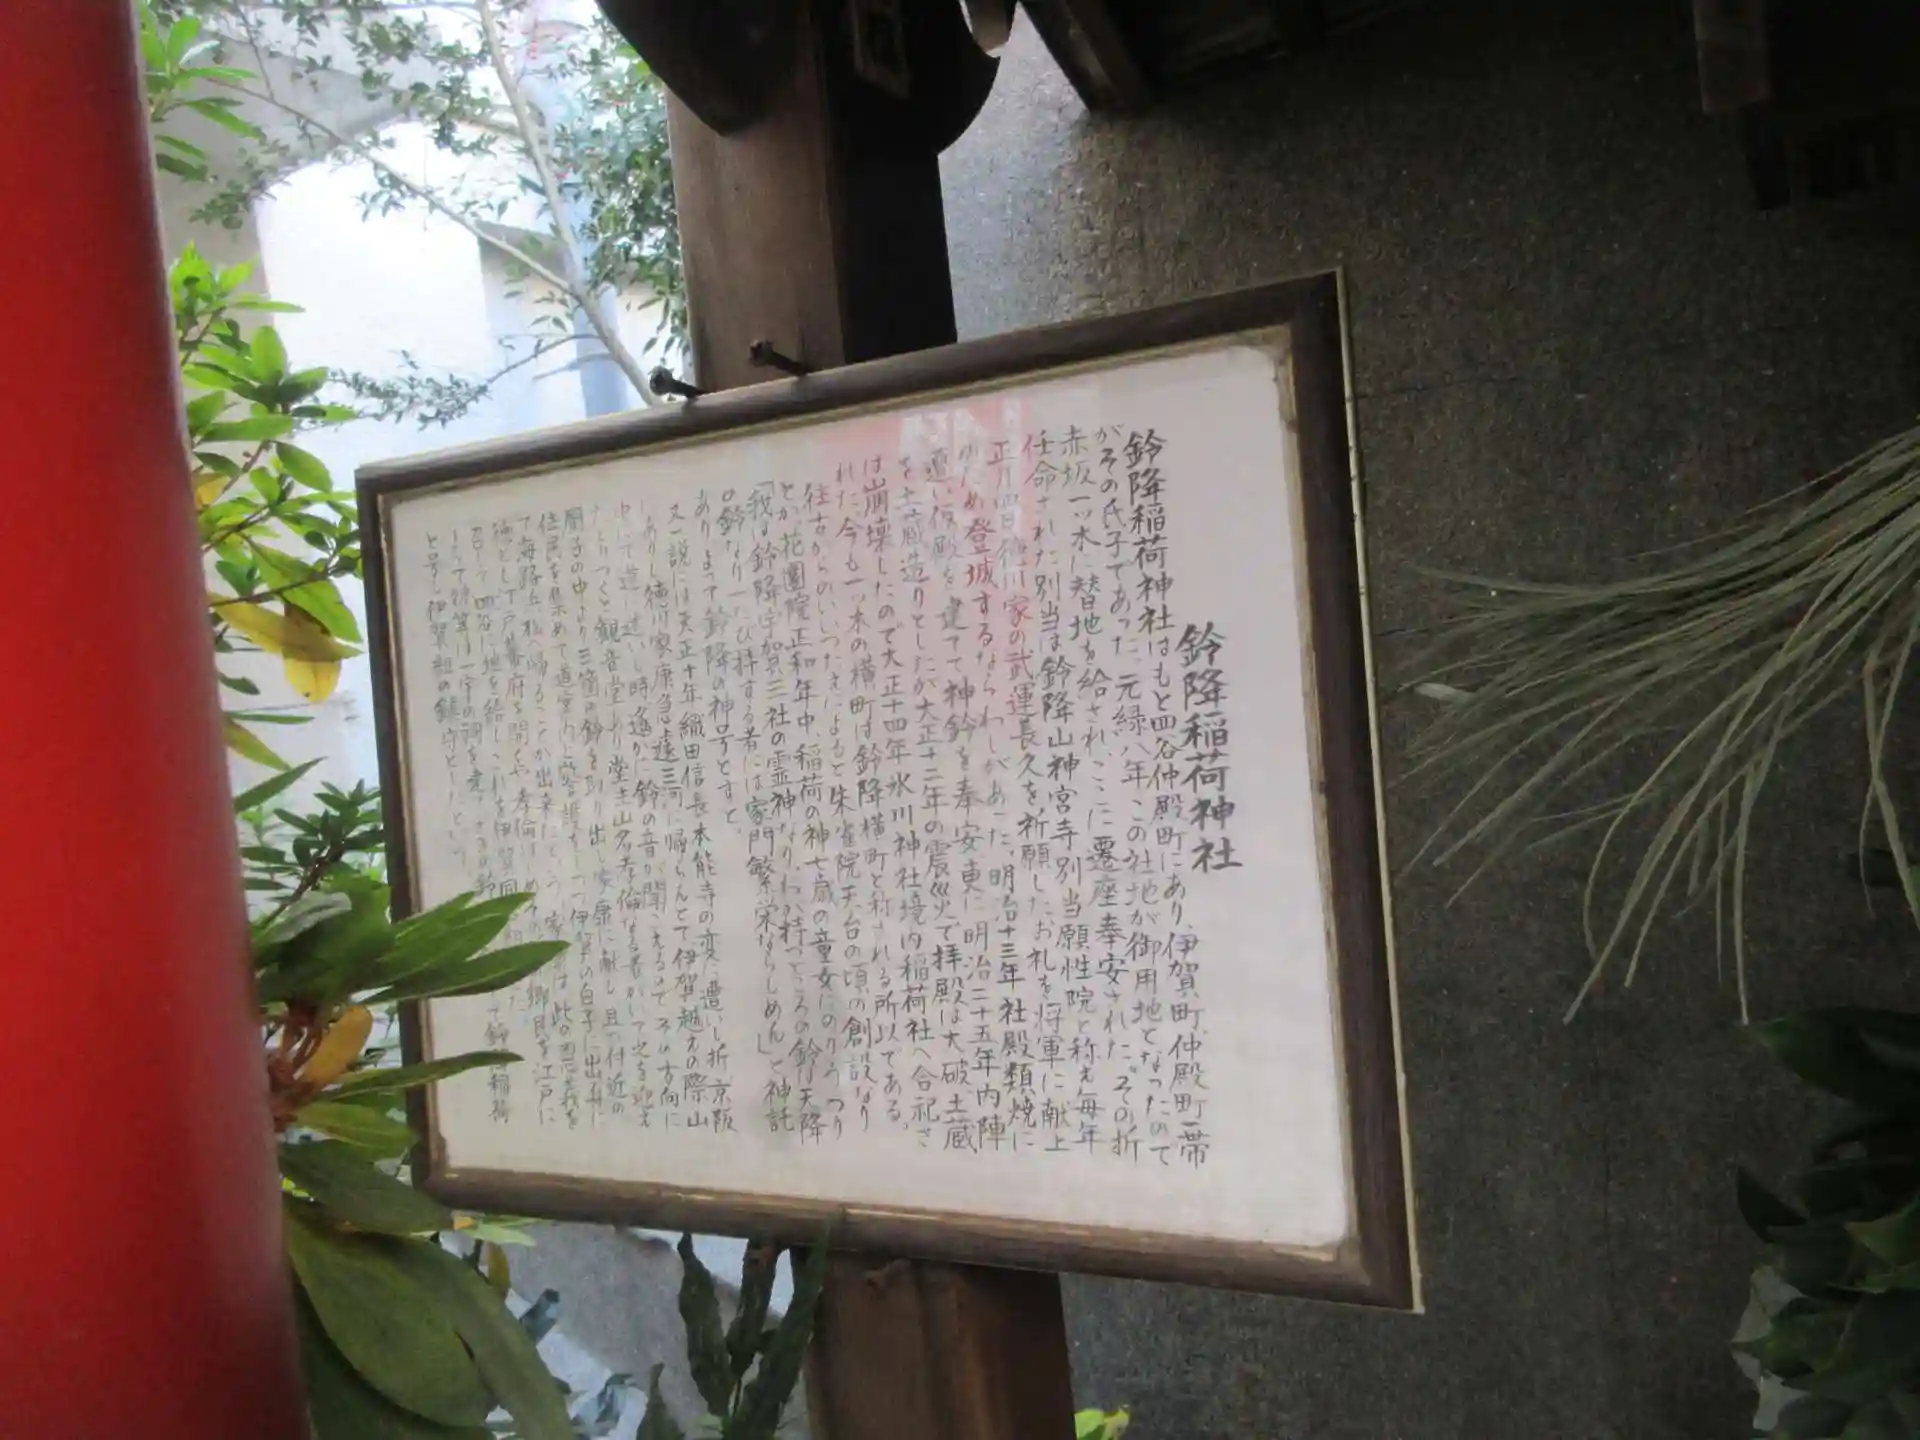 鈴降稲荷神社
鈴降稲荷神社はもと四谷仲殿町にあり、伊賀町、仲殿町一帯
がその氏子であった。元緑八年この社地が御用地となったので
赤坂一ッ木に替地を給され、ここに遷座奉安された。その折
任命された別当は鈴降山神宮寺別当願性院と称え毎年
正月四日徳川家の武運長久を祈願したお札を将軍に献上
のため登城するならわしがあった。明治十三年社殿類焼に
遭い仮殿を建てて神鈴を奉安更に明治二十五年内陣
を土蔵造りとしたが大正十二年の震災で拝殿は大破、土蔵
は崩壊したので大正十四年氷川神社境内稲荷社へ合祀さ
れた。今も一ッ木の横町は鈴降横町と称される所以である。
往古からのいいつたえによると朱雀院天台の頃の創設なり
とか、花園院正和年中、稲荷の神七歳の童女にのりうつり
「我は鈴降宇賀三社の霊神なり、わが持つところの鈴は天降
の鈴なり一たび拝する者には家門繁栄ならしめん」と神託
ありよって鈴降の神号とすと、
又一説には天正十年織田信長本能寺の変に遭いし折京阪
にありし徳川家康急遽三河に帰らんとて伊賀越えの際山
中にて道に迷いし時遙かに鈴の音が聞こえるのでその方向に
たどりつくと観音堂あり堂主山名孝倫なる者かいて火を迎え
厨子の中より三箇の鈴を取り出し家康に献じ且つ付近の
住民を集めて道案内と警護をしつつ伊勢の白子に出
て海路
江戸幕府を開くや孝倫
四谷に地を給し
と号し伊賀組の鎮守としたという